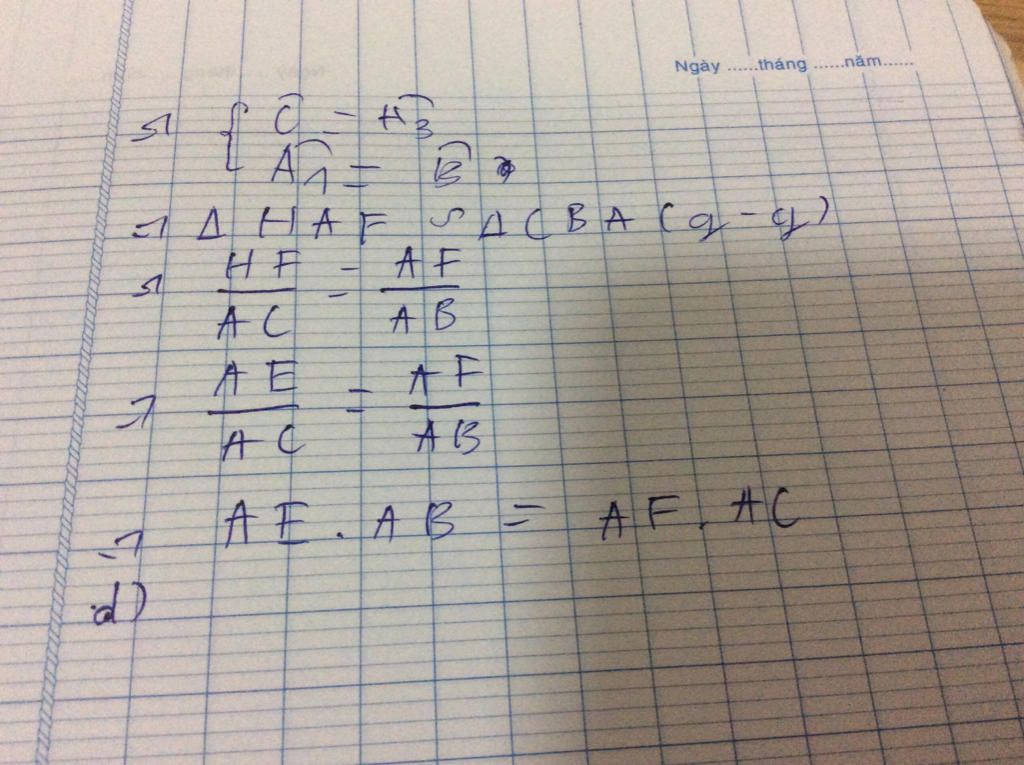 Ngày ......tháng ......năm......
⇒ { Ĉ = Ĥ3
Â1 = B̂
⇒ Δ HAF ∽ Δ CBA (g-g)
⇒ HF/AC = AF/AB
⇒ AE/AC = AF/AB
⇒ AE . AB = AF . AC
d)